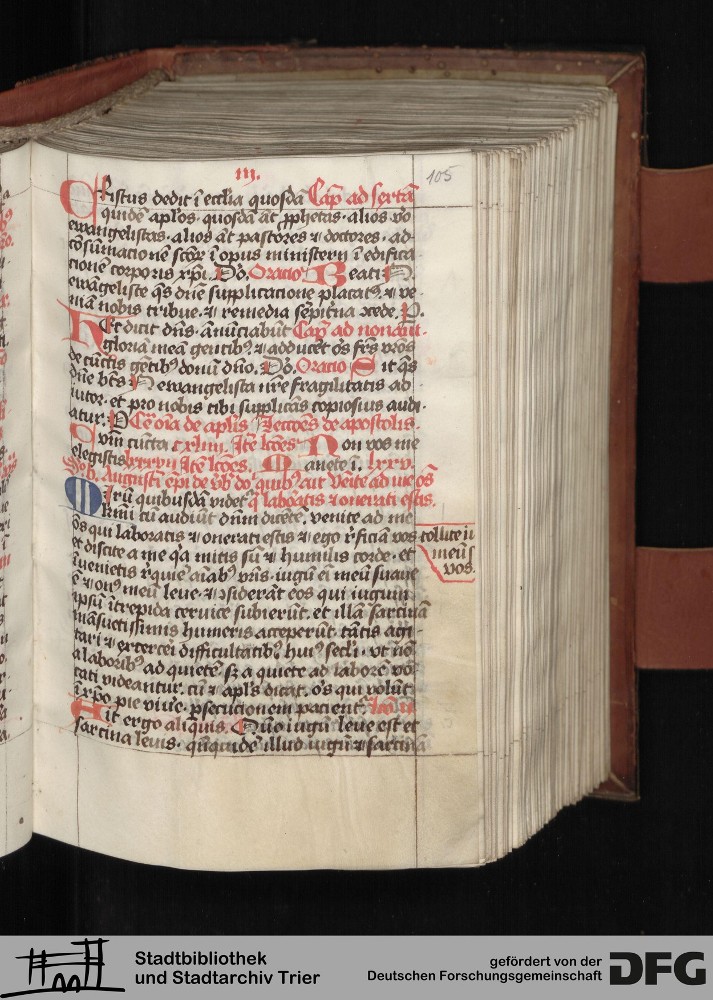 III.
105
Cristus dedit ī ecclīa quosdā Cap̄ ad sextā
quidē aplos. quosdā āt pphetas. alios vo
ewangelistas. alios āt pastores ⁊ doctores. ad
cōsumationē scōꝝ ī opus ministerii ī edifica
tionē corporis xpi. Oratio Beati
ewāgeliste q̄s dnē supplicatione placatꝰ. ⁊ ve
niā nobis tribue. ⁊ remedia sēpit̄na
Hec dicit dn̄s. ānūciabūt Cap̄ ad nonam.
gloriā meā gentibꝰ. ⁊ adducēt ōs frēs vr̄os
de cūctis gētibꝰ donū dn̄o. Oratio Sit q̄s
dn̄e bt̄s N ewangelista nr̄e fragilitatis ad
iutor. et pro nobis tibi supplicās copiosius audi.
atur. Lectōes de apostolis.
cuncta cxliiii. Itē lcōes Non vos me
elegistis lxxvii Itē lcōes. Manete ī. lxxv.
Augusti ep̄i de vb̄ do quibꝰ aut Venite ad me os
Mirū quibusdā videt q̄ laboratis ⁊ onerati estis.
kmi cū audiūt dnm dicētē. venite ad me
ōs qui laboratis ⁊ onerati estis ⁊ ego rficiā vos tollite iu
et discite a me qa mitis sū ⁊ humilis corde. et meū s
īuenietis rquiē aīabꝰ vr̄is. iugū eī meū suaue vos.
ē ⁊ onꝰ meū leue. ⁊ ↄsiderāt eos qui iugum
ipsū ītrepida ceruice subierūt. et illā sarcinā
māsuetissimis humeris acceperūt. tātis agi
tari ⁊ exerceri difficultatibꝰ huiꝰ secli. vt nō
a laboribꝰ ad quietē sꝫ a quiete ad laborē vo
cati videantur. cū ⁊ apls dicat. ōs qui volūt
ī xpo pie viue. psecutionem pacient.
Ait ergo aliquis. Quō iugū leue est et
sarcina leuis. qn̄quidē illud iugū ⁊ sarcina
Stadtbibliothek
und Stadtarchiv Trier
gefördert von der
Deutschen Forschungsgemeinschaft DFG